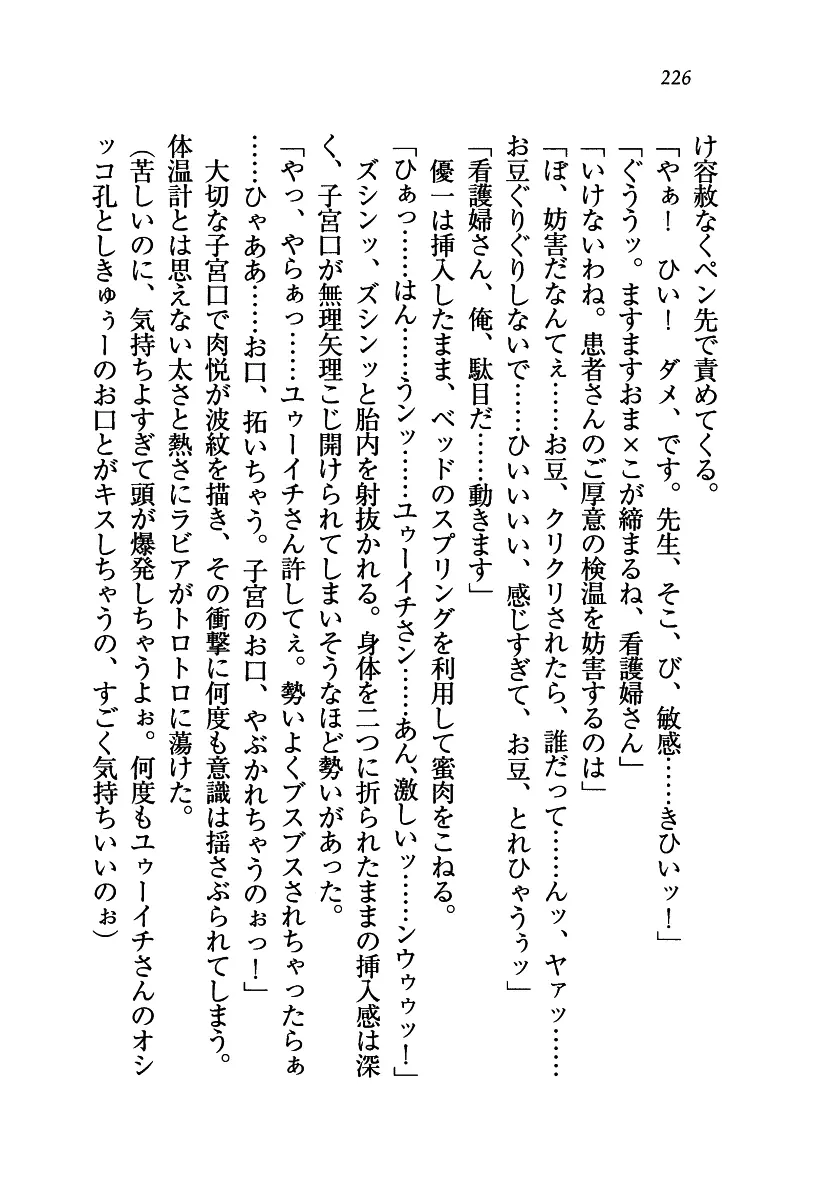 226
け容赦なくペン先で責めてくる。
「やぁ！　ひい！　ダメ、です。先生、そこ、び、敏感……きひいッ！」
「ぐううッ。ますますおま×こが締まるね、看護婦さん」
「いけないわね。患者さんのご厚意の検温を妨害するのは」
「ぼ、妨害だなんてぇ……お豆、クリクリされたら、誰だって……んッ、ヤァッ……
お豆ぐりぐりしないで……ひいいいい、感じすぎて、お豆、とれひゃうぅッ」
「看護婦さん、俺、駄目だ……動きます」
　優一は挿入したまま、ベッドのスプリングを利用して蜜肉をこねる。
「ひぁっ……はん……うンッ……ユゥーイチさン……あん、激しいッ……ンウゥゥッ！」
　ズシンッ、ズシンッと胎内を射抜かれる。身体を二つに折られたままの挿入感は深
く、子宮口が無理矢理こじ開けられてしまいそうなほど勢いがあった。
「やっ、やらぁっ……ユゥーイチさん許してぇ。勢いよくブスブスされちゃったらぁ
……ひゃああ……お口、拓いちゃう。子宮のお口、やぶかれちゃうのぉっ！」
　大切な子宮口で肉悦が波紋を描き、その衝撃に何度も意識は揺さぶられてしまう。
体温計とは思えない太さと熱さにラビアがトロトロに蕩けた。
（苦しいのに、気持ちよすぎて頭が爆発しちゃうよぉ。何度もユゥーイチさんのオシ
ッコ孔としきゅぅーのお口とがキスしちゃうの、すごく気持ちいいのぉ）